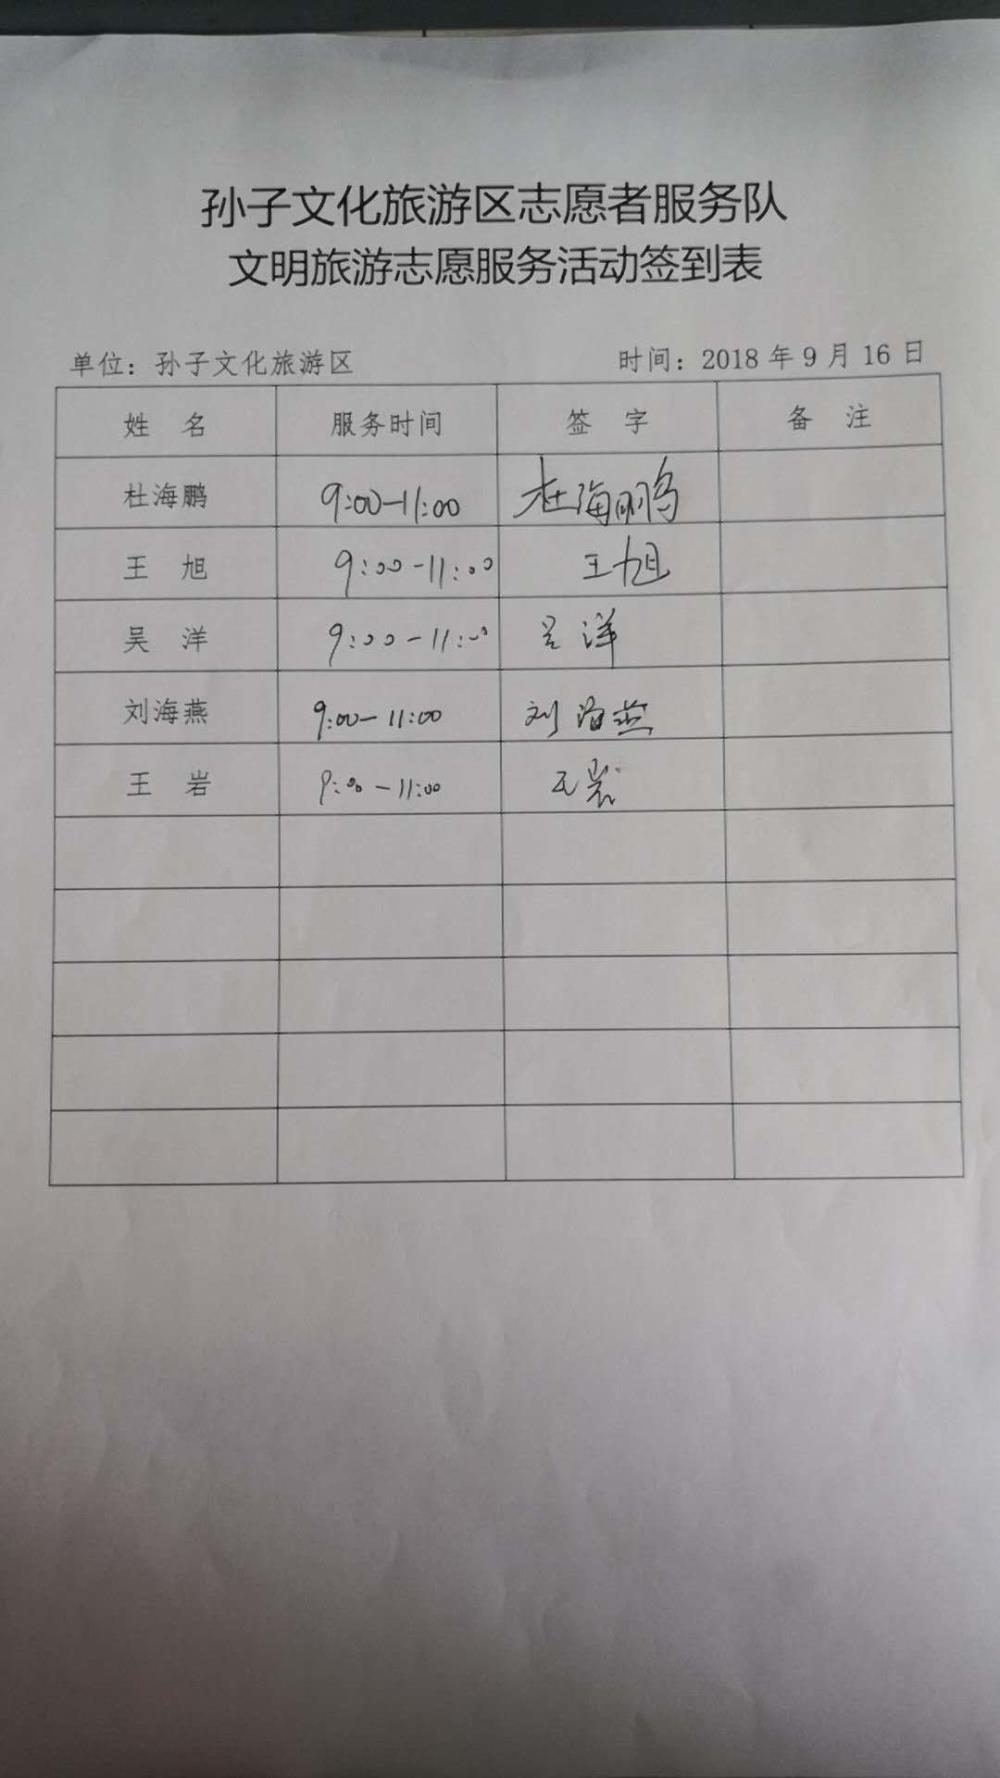 孙子文化旅游区志愿者服务队
文明旅游志愿服务活动签到表
单位：孙子文化旅游区 时间：2018 年 9 月 16 日
姓 名 服务时间 签 字 备 注
杜海鹏 9:00-11:00 杜海鹏
王 旭 9:00-11:00 王旭
吴 洋 9:00-11:00 吴洋
刘海燕 9:00-11:00 刘海燕
王 岩 9:00-11:00 王岩